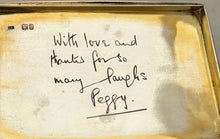 With love and
thanks for so
many laughs
Peggy.